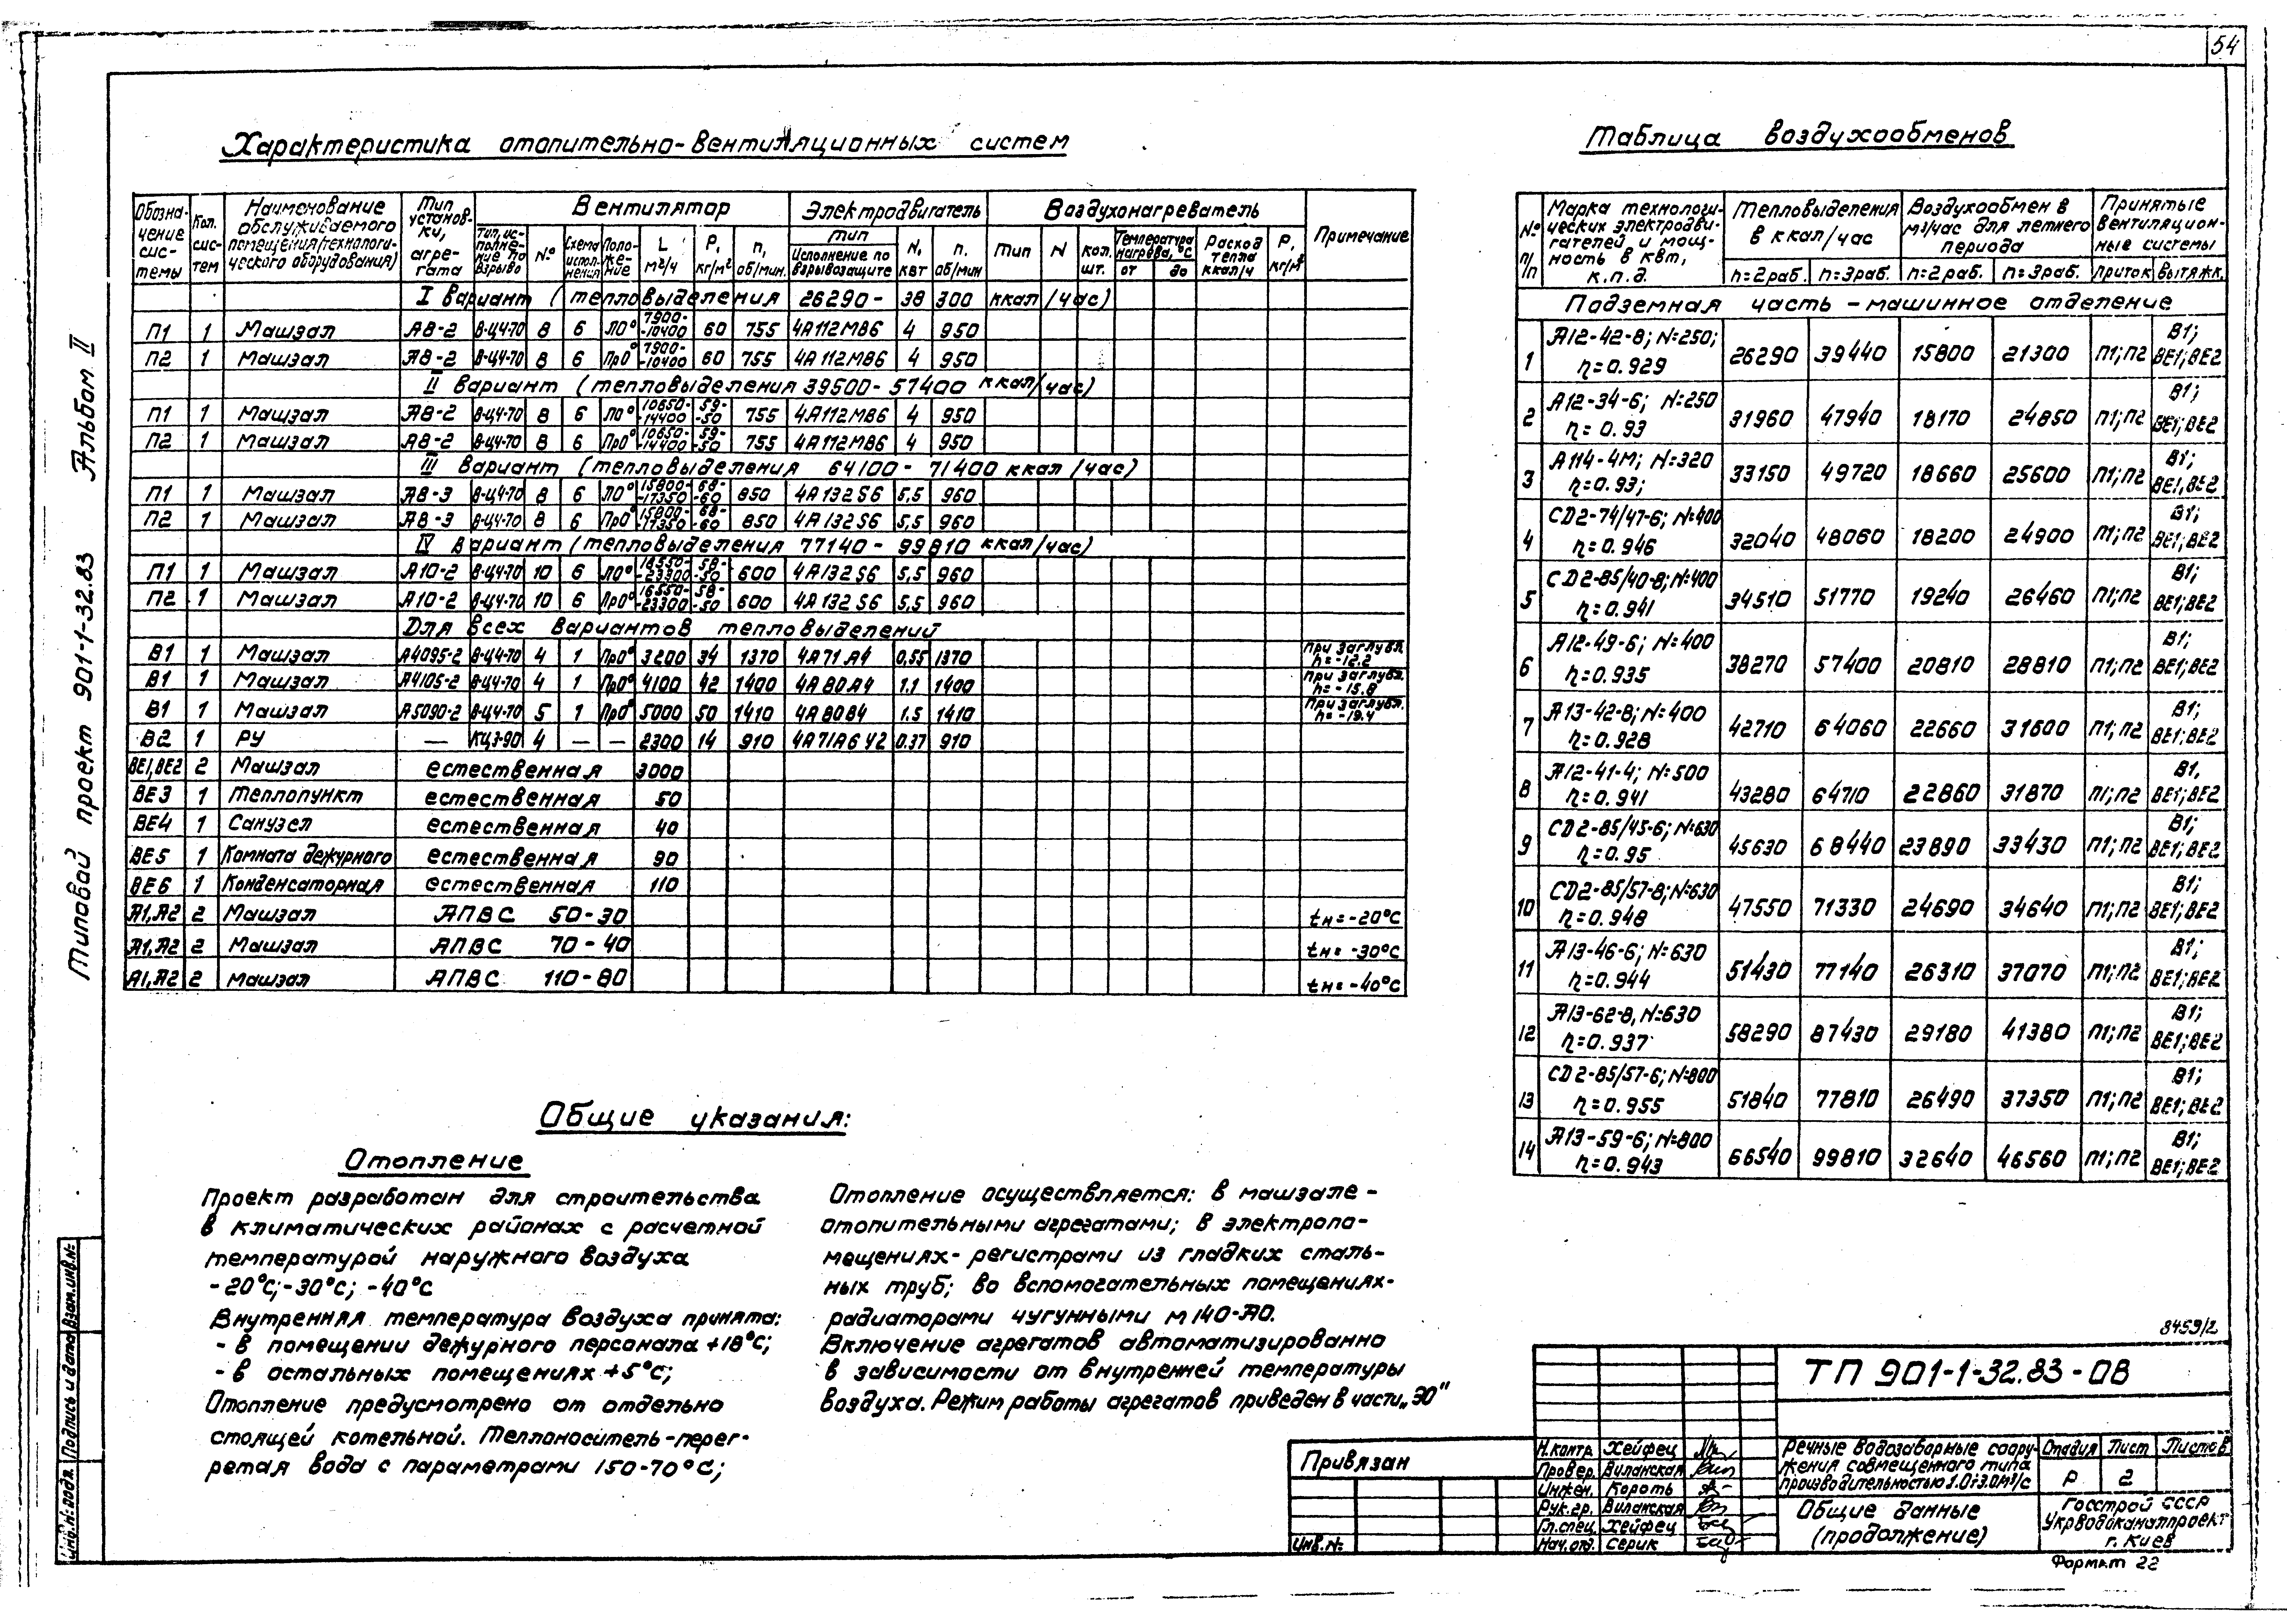 54
Характеристика отопительно-вентиляционных систем
Обозначение системы | Кол. систем | Наименование обслуживаемого помещения (технологического оборудования) | Тип установки, агрегата | Вентилятор | Электродвигатель | Воздухонагреватель | Примечание
Тип, исполнение по взрыво | № | Схема исполнения | Положение | L м³/ч | P, кг/м² | n, об/мин. | Тип Исполнение по взрывозащите | N, квт | n. об/мин | Тип | N | кол. шт. | Температура нагрева, °C от до | Расход тепла ккал/ч | P, кг/м²
I Вариант (тепловыделения 26290-38 300 ккал/час)
П1 1 Машзал А8-2 В-Ц4-70 8 6 Л0° 7900-10400 60 755 4А112МВ6 4 950
П2 1 Машзал А8-2 В-Ц4-70 8 6 Пр0° 7900-10400 60 755 4А112МВ6 4 950
II Вариант (тепловыделения 39500-57400 ккал/час)
П1 1 Машзал А8-2 В-Ц4-70 8 6 Л0° 10650-14400 59-50 755 4А112МВ6 4 950
П2 1 Машзал А8-2 В-Ц4-70 8 6 Пр0° 10650-14400 59-50 755 4А112МВ6 4 950
III Вариант (тепловыделения 64100-71400 ккал/час)
П1 1 Машзал А8-3 В-Ц4-70 8 6 Л0° 15800-17350 68-60 850 4А132S6 5,5 960
П2 1 Машзал А8-3 В-Ц4-70 8 6 Пр0° 15800-17350 68-60 850 4А132S6 5,5 960
IV Вариант (тепловыделения 77140-99810 ккал/час)
П1 1 Машзал А10-2 В-Ц4-70 10 6 Л0° -23300 58-50 600 4А132S6 5,5 960
П2 1 Машзал А10-2 В-Ц4-70 10 6 Пр0° -23300 58-50 600 4А132S6 5,5 960
Для всех вариантов тепловыделений
В1 1 Машзал А4095-2 В-Ц4-70 4 1 Пр0° 3200 34 1370 4А71А4 0,55 1370 при заглубл. h=-12.2
В1 1 Машзал А4105-2 В-Ц4-70 4 1 Пр0° 4100 42 1400 4А80А4 1.1 1400 при заглубл. h=-15.8
В1 1 Машзал А5090-2 В-Ц4-70 5 1 Пр0° 5000 50 1410 4А80В4 1.5 1410 при заглубл. h=-19.4
В2 1 РУ — КЦ3-90 4 — — 2300 14 910 4А71А6У2 0.37 910
ВЕ1,ВЕ2 2 Машзал естественная 3000
ВЕ3 1 Теплопункт естественная 50
ВЕ4 1 Санузел естественная 40
ВЕ5 1 Комната дежурного естественная 90
ВЕ6 1 Конденсаторная естественная 110
А1,А2 2 Машзал АПВС 50-30 tн=-20°C
А1,А2 2 Машзал АПВС 70-40 tн=-30°C
А1,А2 2 Машзал АПВС 110-80 tн=-40°C
Таблица воздухообменов
№ п/п | Марка технологических электродвигателей и мощность в квт, к.п.д. | Тепловыделения в ккал/час | Воздухообмен в м³/час для летнего периода | Принятые вентиляционные системы
n=2раб. | n=3раб. | n=2раб. | n=3раб. | приток | вытяжк.
Подземная часть - машинное отделение
1 А12-42-8; N=250; η=0.929 26290 39440 15800 21300 П1;П2 В1; ВЕ1;ВЕ2
2 А12-34-6; N=250 η=0.93 31960 47940 18170 24850 П1;П2 В1; ВЕ1;ВЕ2
3 А114-4М; N=320 η=0.93; 33150 49720 18660 25600 П1;П2 В1; ВЕ1,ВЕ2
4 СД2-74/47-6; N=400 η=0.946 32040 48060 18200 24900 П1;П2 В1; ВЕ1;ВЕ2
5 СД2-85/40-8; N=400 η=0.941 34510 51770 19240 26460 П1;П2 В1; ВЕ1;ВЕ2
6 А12-49-6; N=400 η=0.935 38270 57400 20810 28810 П1;П2 В1; ВЕ1;ВЕ2
7 А13-42-8; N=400 η=0.928 42710 64060 22660 31600 П1;П2 В1; ВЕ1;ВЕ2
8 А12-41-4; N=500 η=0.941 43280 64710 22860 31870 П1;П2 В1, ВЕ1;ВЕ2
9 СД2-85/45-6; N=630 η=0.95 45630 68440 23890 33430 П1;П2 В1; ВЕ1;ВЕ2
10 СД2-85/57-8; N=630 η=0.948 47550 71330 24690 34640 П1;П2 В1; ВЕ1;ВЕ2
11 А13-46-6; N=630 η=0.944 51430 77140 26310 37070 П1;П2 В1; ВЕ1;ВЕ2
12 А13-62-8, N=630 η=0.937 58290 87430 29180 41380 П1;П2 В1; ВЕ1;ВЕ2
13 СД2-85/57-6; N=800 η=0.955 51840 77810 26490 37350 П1;П2 В1; ВЕ1;ВЕ2
14 А13-59-6; N=800 η=0.943 66540 99810 32640 46560 П1;П2 В1; ВЕ1;ВЕ2
Общие указания:
Отопление
Проект разработан для строительства
в климатических районах с расчетной
температурой наружного воздуха
-20°C;-30°C; -40°C
Внутренняя температура воздуха принята:
- в помещении дежурного персонала +18°C;
- в остальных помещениях +5°C;
Отопление предусмотрено от отдельно
стоящей котельной. Теплоноситель-перег-
ретая вода с параметрами 150-70°C;
Отопление осуществляется: в машзале -
отопительными агрегатами; в электропо-
мещениях- регистрами из гладких сталь-
ных труб; во вспомогательных помещениях-
радиаторами чугунными М140-АО.
Включение агрегатов автоматизированно
в зависимости от внутренней температуры
воздуха. Режим работы агрегатов приведен в части „ЭО"
Типовой проект 901-1-32.83 Альбом II
Инв.№ подл. Подпись и дата Взам.инв.№
8459/2
ТП 901-1-32.83-ОВ
Привязан
Инв.№
Н.контр. Хейфец
Провер. Виланская
Инжен. Короть
Рук.гр. Виланская
Гл.спец. Хейфец
Нач.отд. Серик
Речные водозаборные соору-
жения совмещенного типа
производительностью 1.0÷3.0м³/с
Стадия Лист Листов
Р 2
Общие данные
(продолжение)
Госстрой СССР
Укрводоканалпроект
г. Киев
Формат 22